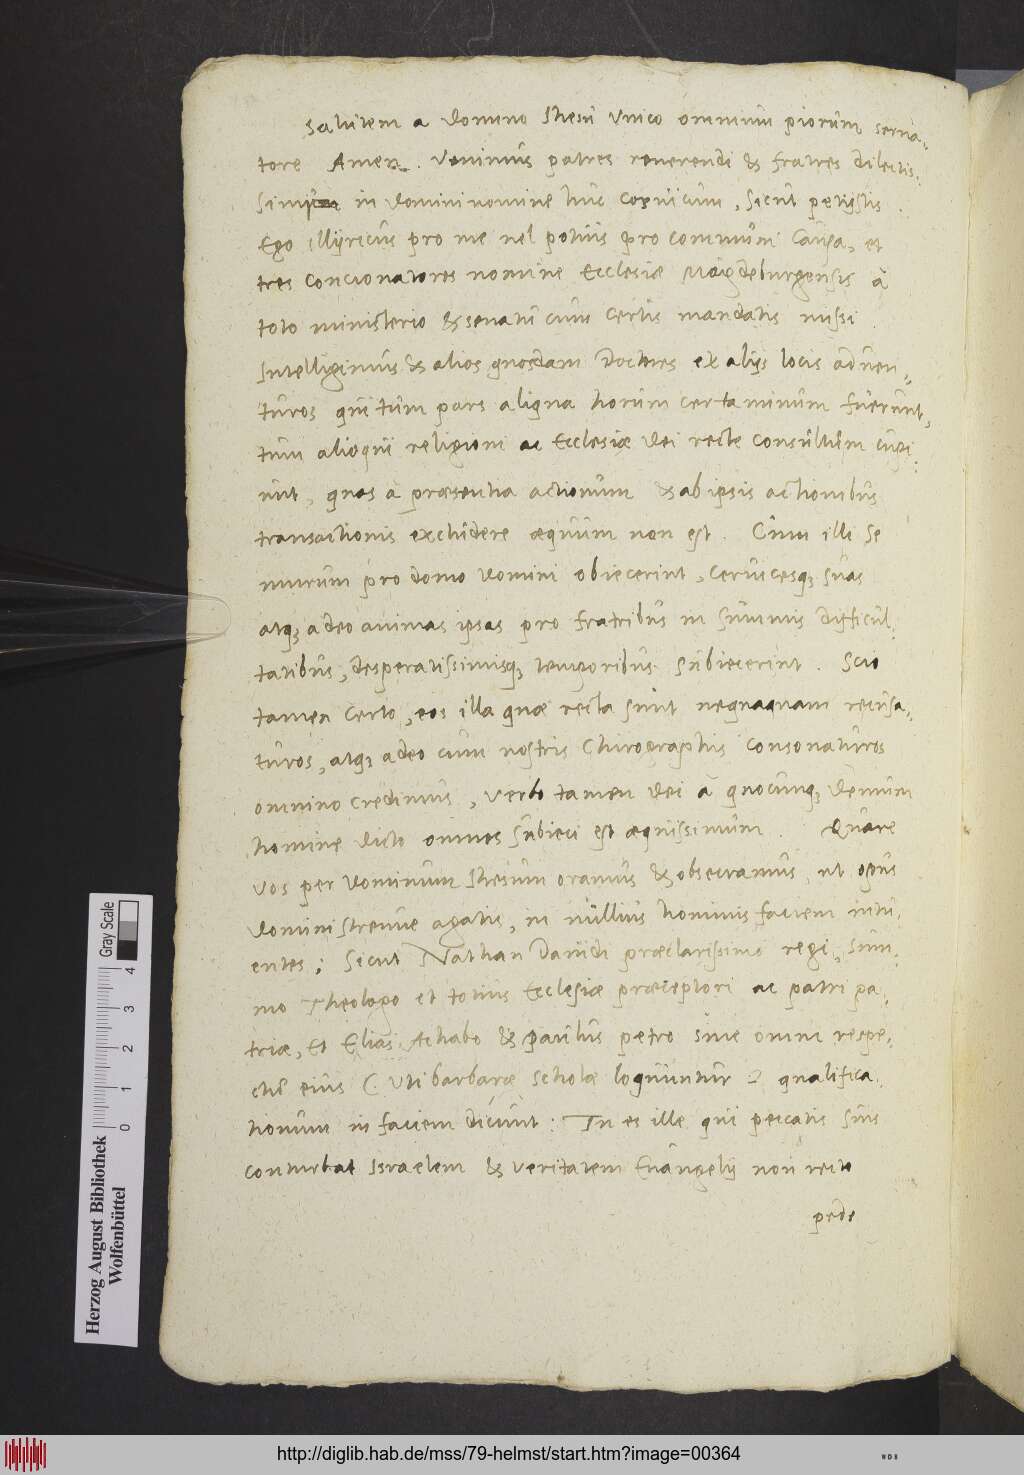 Salutem a Domino Ihesu Unico omnium piorum serua-
tore Amen. Venimus patres reuerendi & fratres dilectis-
simi in Domini nomine huc Cosuicum, sicut petijstis.
Ego illyricus pro me uel potius pro communi causa, et
tres concionatores nomine Ecclesiæ Magdeburgensis à
toto ministerio & senatu cum certis mandatis missi.
Intelligimus & alios quosdam Doctores ex alijs locis aduen-
turos qui tum pars aliqua horum certaminum fuerunt,
tum alioqui religioni ac Ecclesiæ Dei recte consultum cupi-
unt, quos à præsentia actionum & ab ipsis actionibus
transactionis excludere æquum non est. Cum illi se
murum pro domo Domini obiecerint, ceruicesq3 suas
atq3 adeo animas ipsas pro fratribus in summis difficul-
tatibus, desperatissimisq3 temporibus subiecerint. Scio
tamen certo, eos illa quæ recta sunt nequaquam recusa-
turos, atq3 adeo cum nostris Chirographis consonaturos
omnino credimus, Verbo tamen Dei à quocunq3 demum
homine dicto omnes subieci est æquissimum. Quare
vos per Dominum Ihesum oramus & obsecramus, ut opus
Domini strenue agatis, in nullius hominis faciem intu-
entes; Sicut Nathan Dauidi præclarissimo regi, sum-
mo Theologo et totius Ecclesiæ præceptori ac patri pa-
triæ, Et Elias Achabo & paulus petro sine omni respe-
ctu eius (uti barbaræ scholæ loquuntur) qualifica-
tionum in faciem dicunt: Tu es ille qui peccatis suis
conturbat Israelem & veritatem Euangelij non recto
pede
Herzog August Bibliothek
Wolfenbüttel
0 1 2 3 4
Gray Scale
http://diglib.hab.de/mss/79-helmst/start.htm?image=00364
WDB